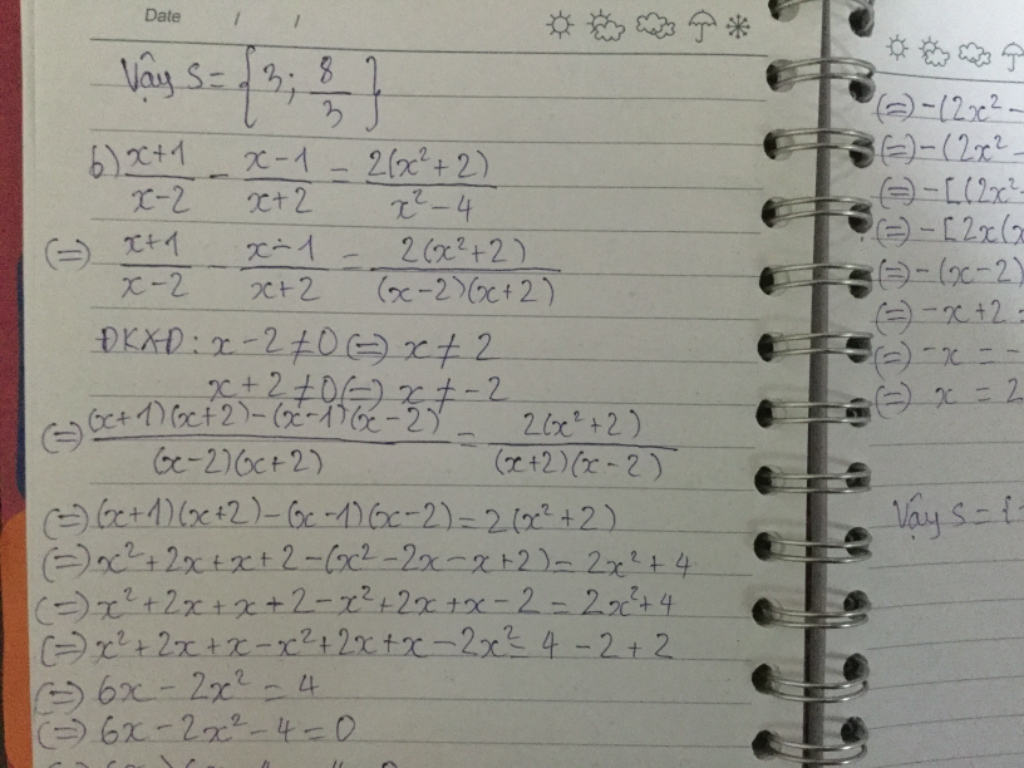 Date / /
Vậy S = { 3; 8/3 }
b) x+1/x-2 - x-1/x+2 = 2(x²+2)/x²-4
(=) x+1/x-2 - x-1/x+2 = 2(x²+2)/(x-2)(x+2)
ĐKXĐ: x-2≠0 (=) x≠2
x+2≠0 (=) x≠-2
(=) (x+1)(x+2)-(x-1)(x-2)/(x-2)(x+2) = 2(x²+2)/(x+2)(x-2)
(=) (x+1)(x+2)-(x-1)(x-2)=2(x²+2)
(=) x²+2x+x+2-(x²-2x-x+2)=2x²+4
(=) x²+2x+x+2-x²+2x+x-2=2x²+4
(=) x²+2x+x-x²+2x+x-2x²=4-2+2
(=) 6x-2x²=4
(=) 6x-2x²-4=0
(=) -(2x²-
(=) -(2x²-
(=) -[(2x²-
(=) -[2x(x
(=) -(x-2)
(=) -x+2=
(=) -x=-
(=) x=2
Vậy S={